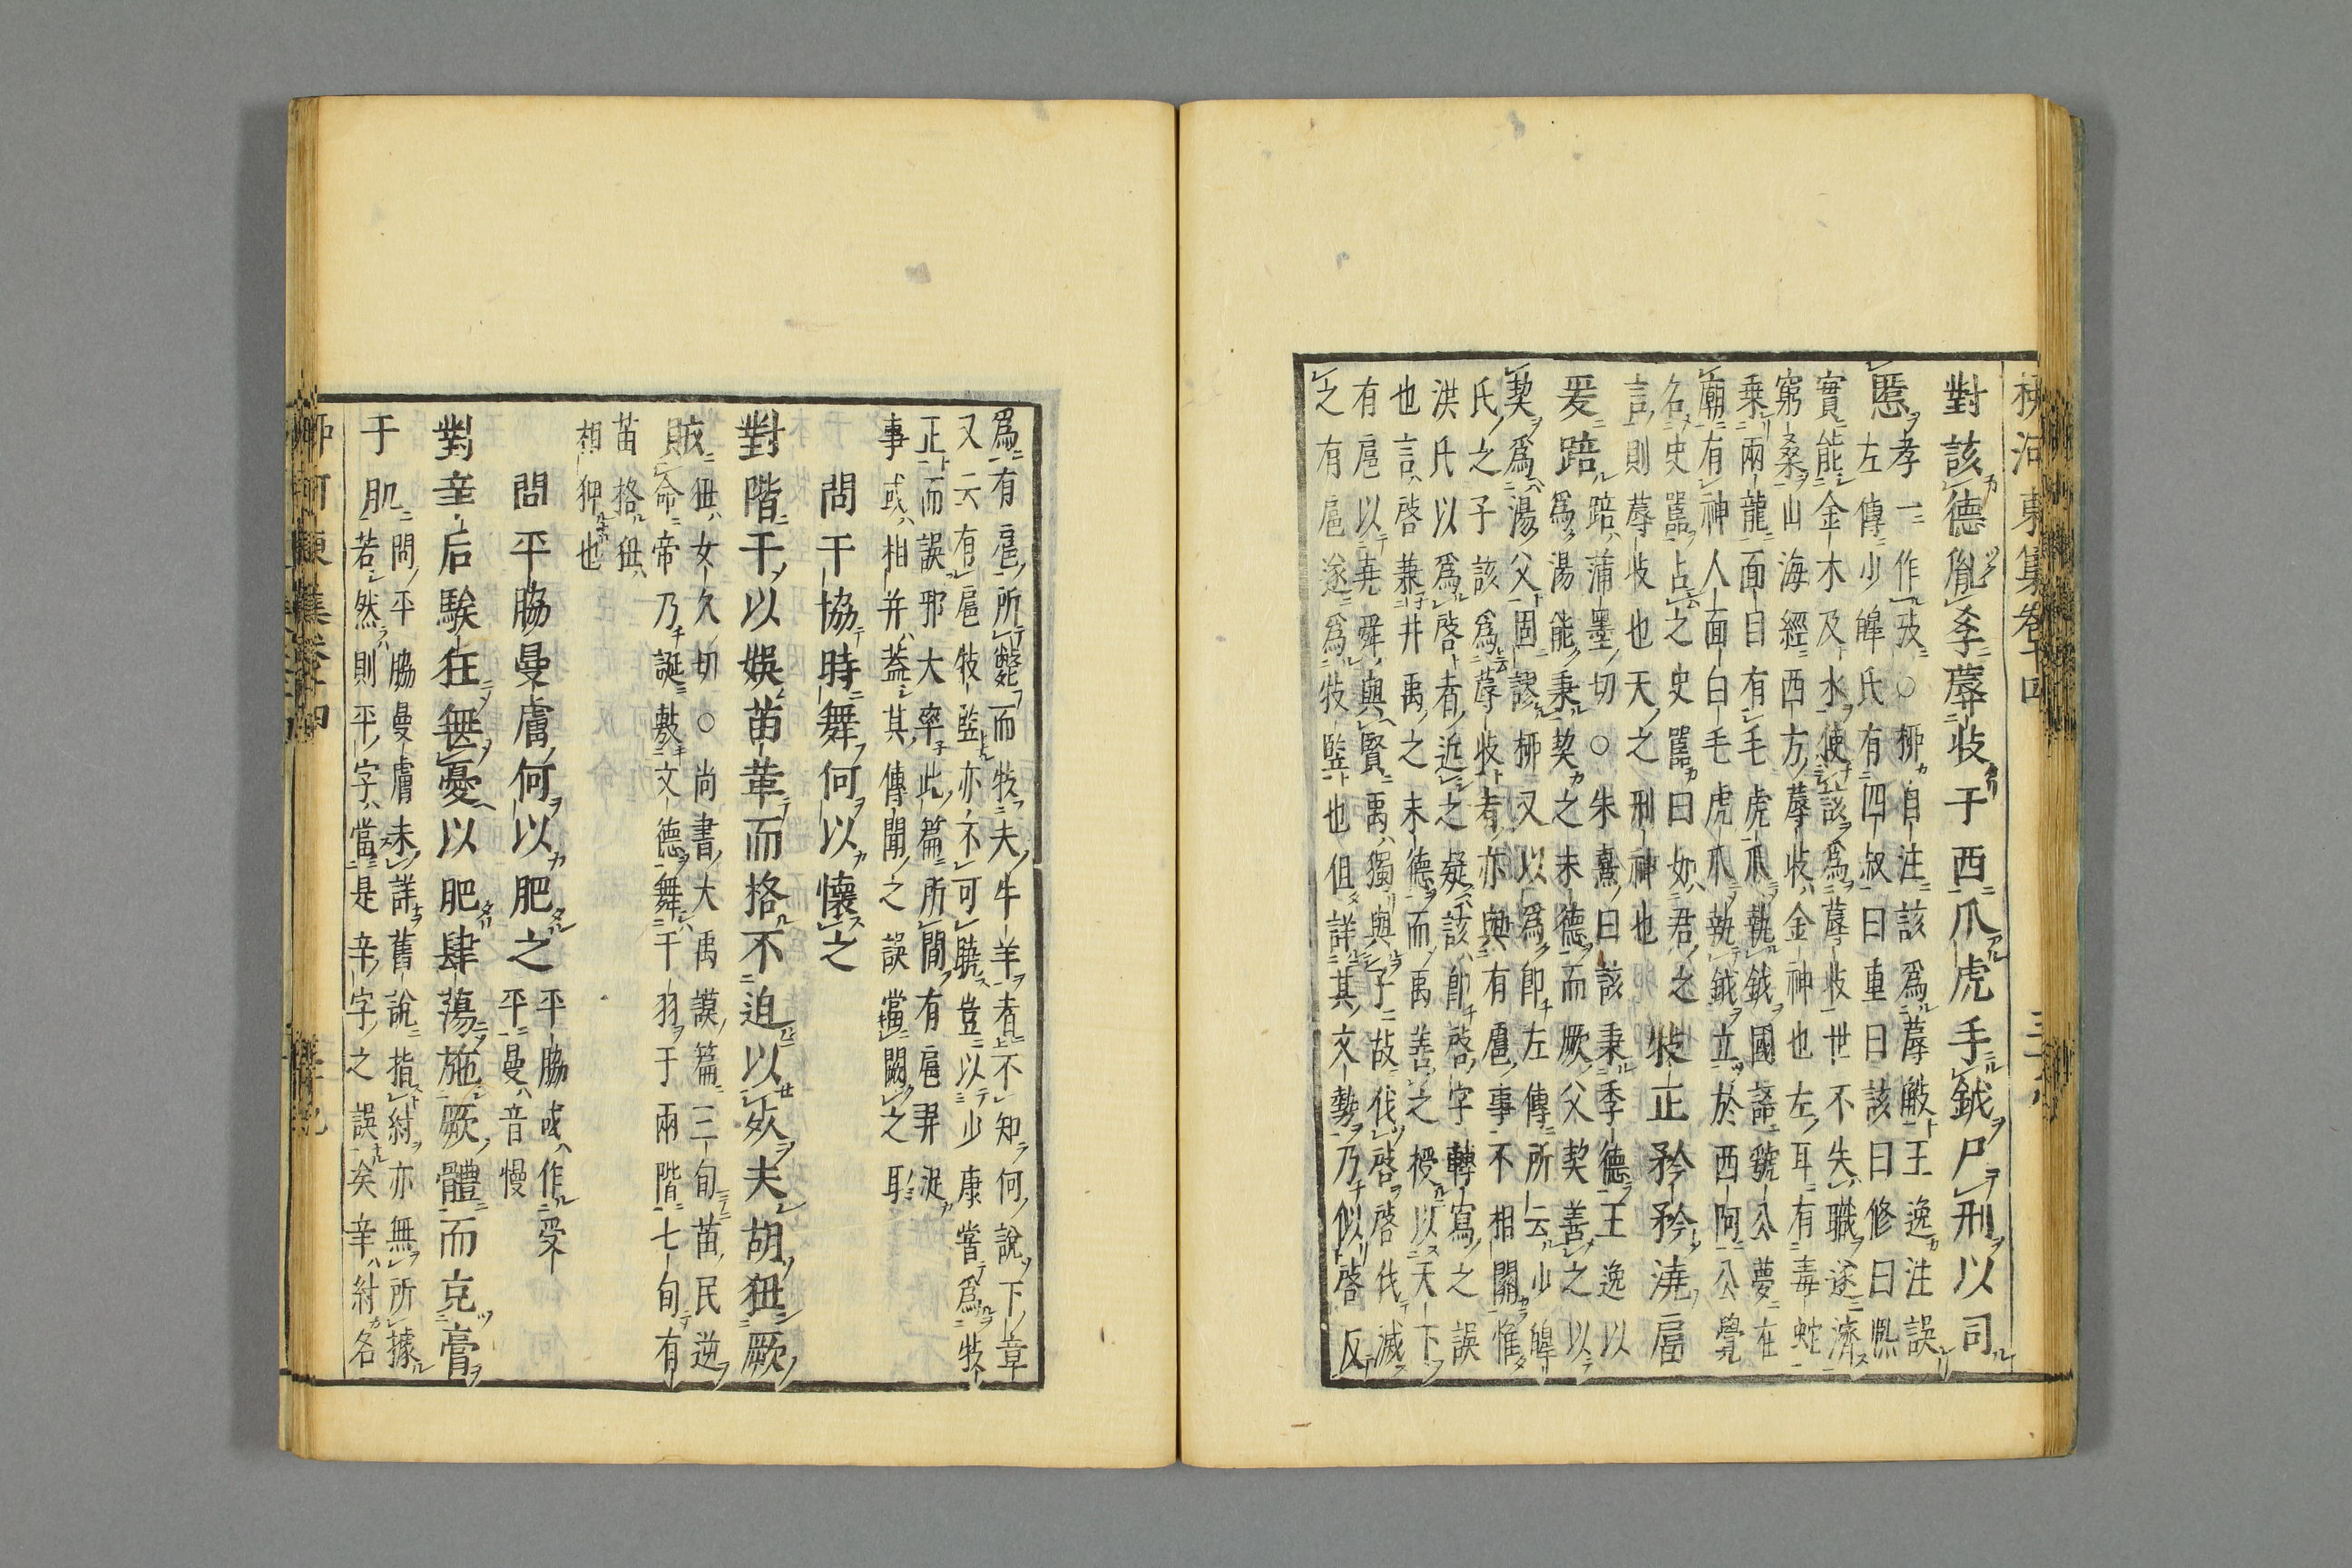 柳河東集卷十四
對該德胤季蓐收于西爪虎手鉞尸刑以司
慝
孝一作弢○柳自注該爲蓐收王逸注誤
左傳少皥氏有四叔曰重曰該曰修曰熙
實能金木及水使該爲蓐收世不失職遂濟
窮桑山海經西方蓐收金神也左耳有毒蛇
乗兩龍面目有毛虎爪執鉞國語虢公夢在
廟有神人面白毛虎爪執鉞立於西阿公覺
名史嚚占之史嚚曰如君之
言則蓐收也天之刑神也
牧正矜矜澆扈
爰踣
踣蒲墨切○朱熹曰該秉季德王逸以
爲湯能秉契之末德而厥父契善之以
契爲湯父固謬柳又以爲卽左傳所云少皥
氏之子該爲蓐收者亦與有扈事不相關惟
洪氏以爲啓者近之疑該卽啓字轉寫之誤
也言啓兼并禹之末德而禹善之授以天下
有扈以堯舜與賢禹獨與子故伐啓啓伐滅
之有扈遂爲牧豎也但詳其文勢乃似啓反
爲有扈所斃而牧夫牛羊者不知何說下章
又云有扈牧豎亦不可曉豈以少康嘗爲牧
正而誤邪大率此篇所間有扈羿浞
事或相并蓋其傳聞之誤當闕之耳
問干協時舞何以懷之
對階干以娛苗革而格不迫以死夫胡狃厥
賊
狃女久切○尚書大禹謨篇三旬苗民逆
命帝乃誕敷文德舞干羽于兩階七旬有
苗格狃
相狎也
問平脇曼膚何以肥之
平脇或作受
平曼音慢
對辛后騃狂無憂以肥肆蕩施厥體而克膏
于肌
問平脇曼膚未詳舊說指紂亦無所據
若然則平字當是辛字之誤矣辛紂各
柳河東集卷十四